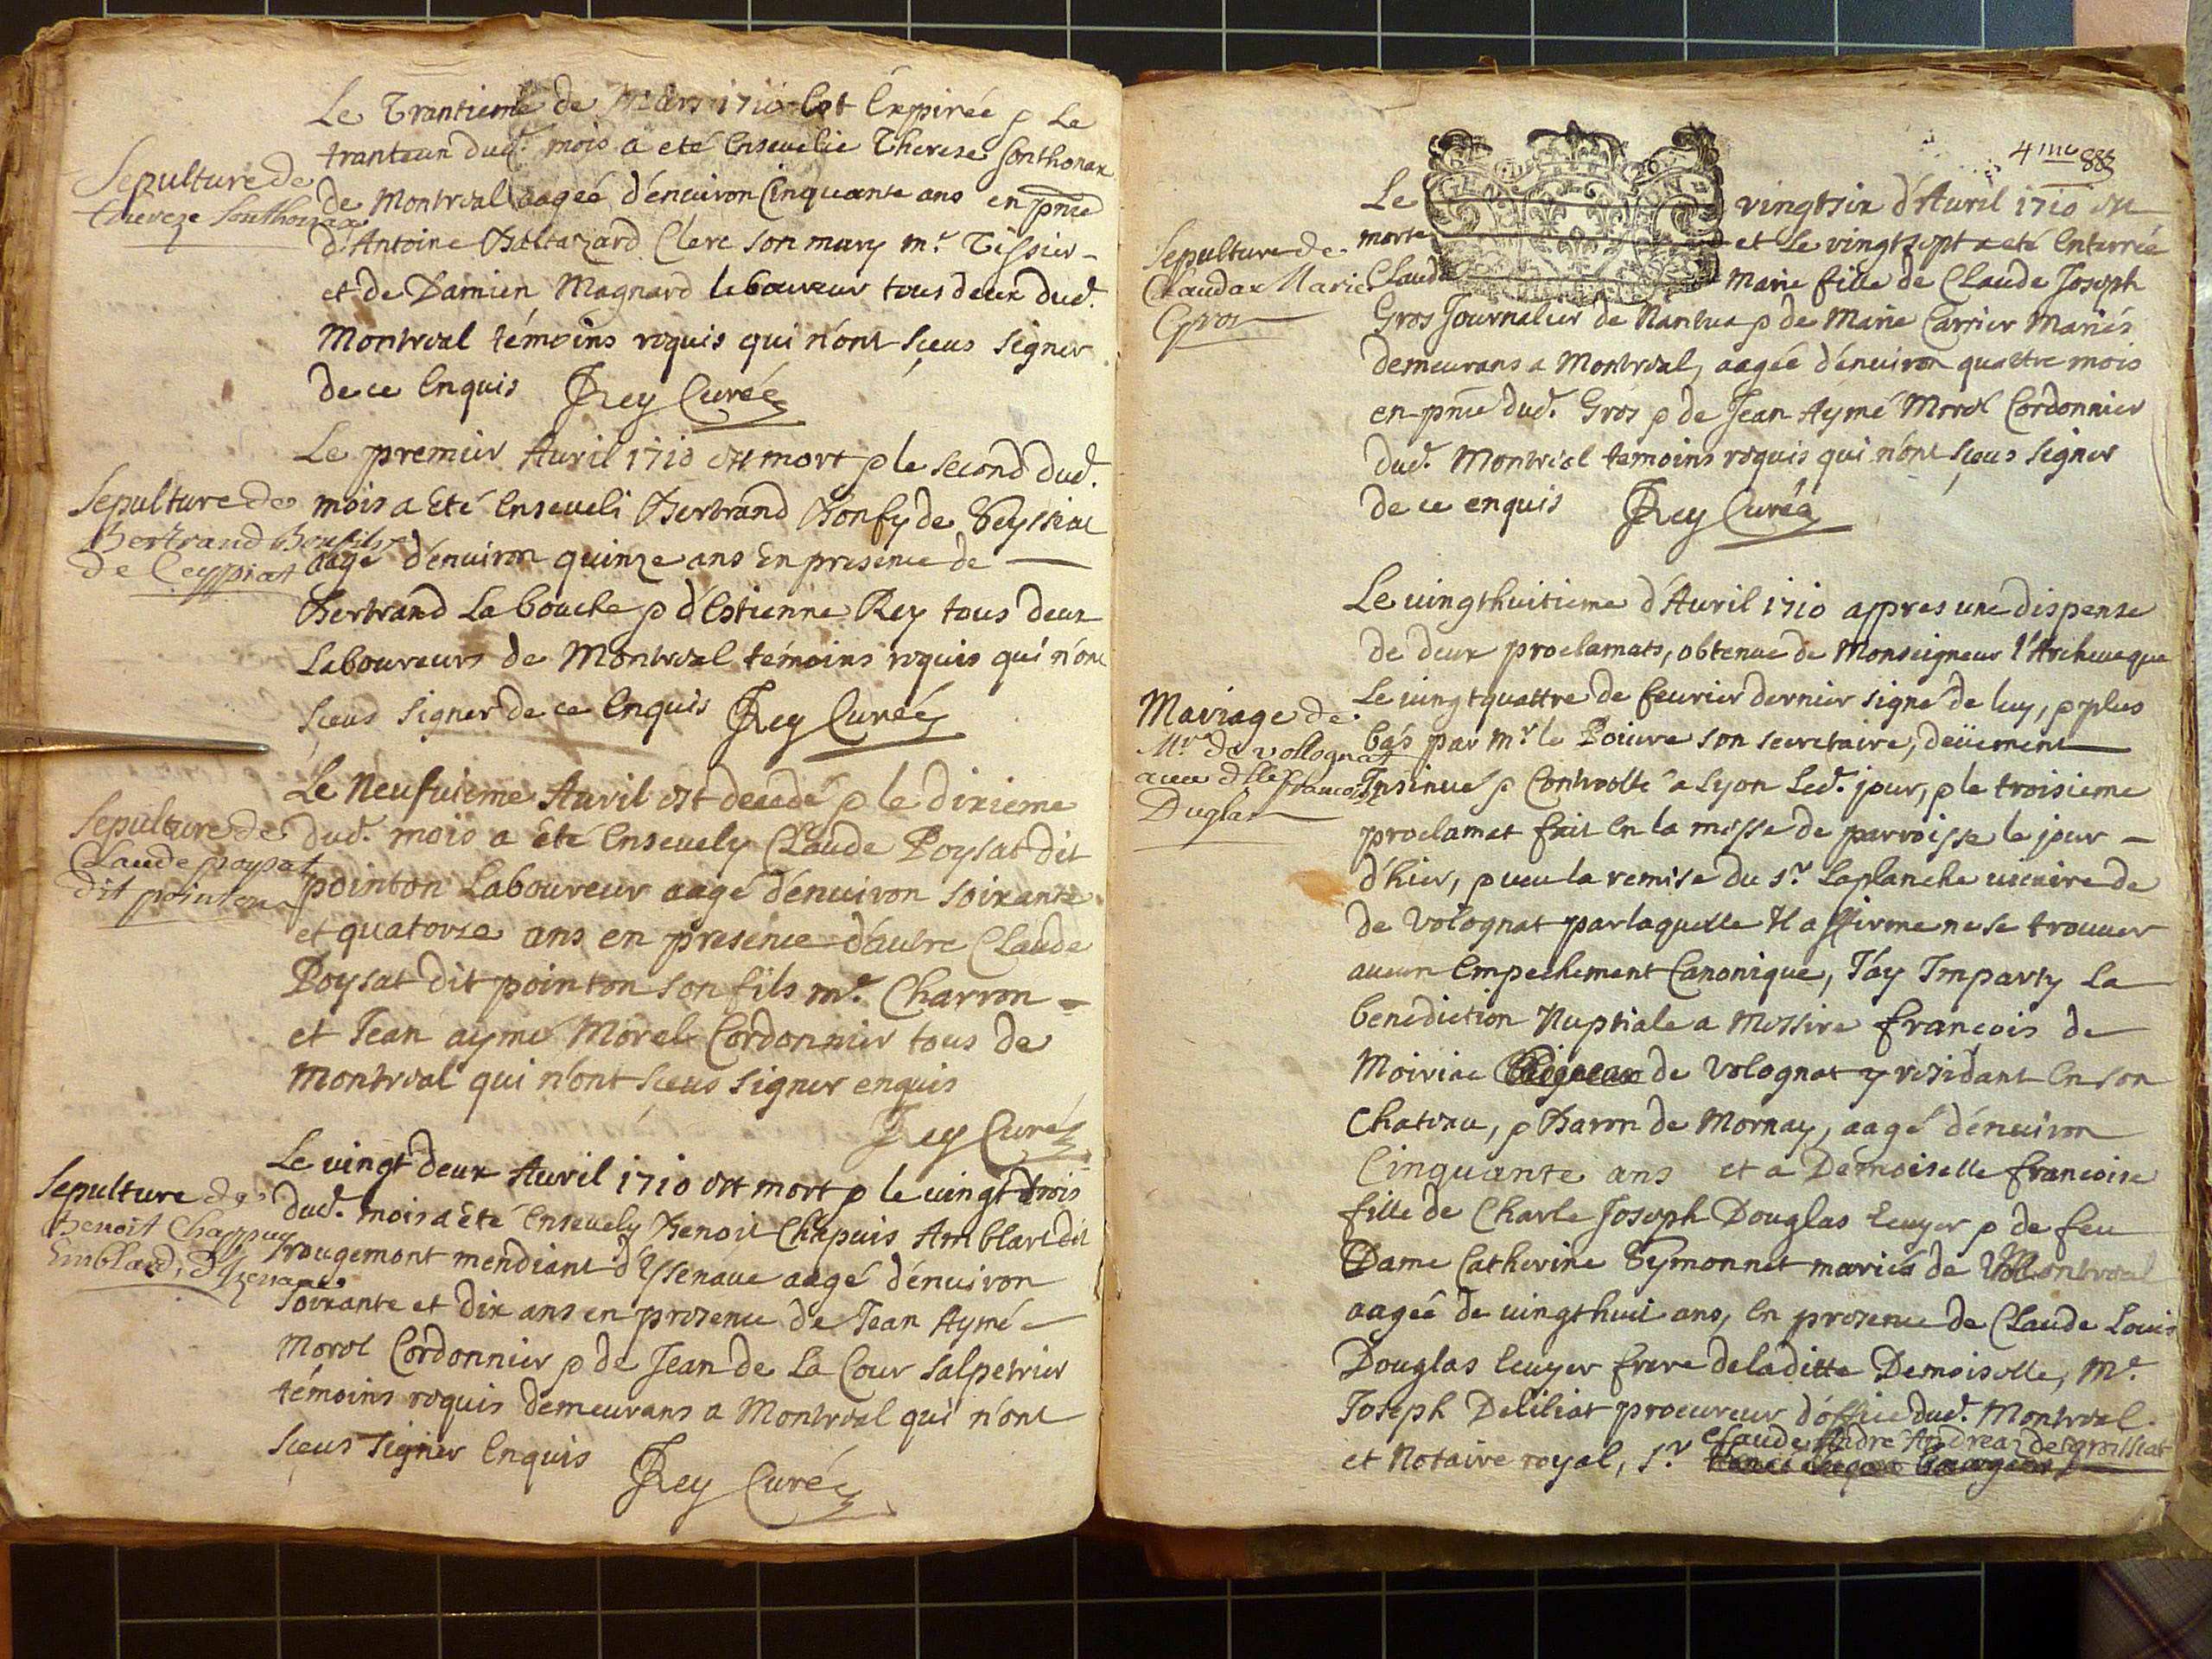 Le Trantieme de Mars 1710 Est Expirée & Le
tranteun dud. mois a eté Ensevelie Therese Sonthonax
Sepulture de
thereze Sonthonax
de Montreal aagée d'environ Cinquante ans en pnce
d'Antoine Baltazard Clerc son mary mr. Tissier
et de Damien Magnard laboureur tous deux dud.
Montreal témoins requis qui n'ont sceus signer
de ce Enquis JRey Curé
Le premier Avril 1710 est mort & le second dud.
Sepulture de
Bertrand
de Ceyssiat
mois a Eté Enseveli Bertrand Bonfy de Seyssiat
aagé d'environ quinze ans En presence de
Bertrand La bouche & d'Estienne Rey tous deux
Laboureurs de Montreal témoins requis qui n'ont
sceus signer de ce Enquis JRey Curé
Le Neufvieme Avril est decedé & le dixieme
Sepulture de
Claude poysat
dit pointon
dud. mois a eté Ensevely Claude Poysat dit
pointon Laboureur aagé d'environ soixante
et quatorze ans en presence d'autre Claude
Poysat dit pointon son fils me. Charron
et Jean aymé Morel Cordonnier tous de
Montreal qui n'ont sceus signer enquis
JRey Curé
Le vingt deux Avril 1710 est mort & le vingt trois
Sepulture de
benoit Chappuy
Emblard, d'Izenave
dud. mois a Eté Ensevely Benoit Chapuis Amblard dit
rougemont mendiant d'Ysenave aagé d'environ
soixante et dix ans en presence de Jean Aymé
Morel Cordonnier & de Jean de La Cour salpetrier
témoins requis demeurans a Montreal qui n'ont
sceus signer Enquis JRey Curé
4me 88
Le vingtsix d'Avril 1710 est
morte et Le vingtsept a eté Enterrée
Sepulture de
Claudax Marie
Gros
Claude Marie fille de Claude Joseph
Gros Journalier de Nantua & de Marie Carrier Mariés
demeurans a Montreal, aagée d'environ quattre mois
en pnce dud. Gros & de Jean Aymé Morel Cordonnier
dud. Montreal temoins requis qui n'ont sceus signer
de ce enquis JRey Curé
Le vingthuitieme d'Avril 1710 appres une dispense
de deux proclamats, obtenue de Monseigneur l'Archeveque
Le vingtquattre de fevrier dernier signé de luy, & plus
Mariage de
Mr. de vollognat
avec dlle francoise
Duglas
bas par mr. le Poivre son secretaire, deüement
Insinué & Controlle a Lyon Led. jour, & le troisieme
proclamat fait En la messe de parroisse le jour
d'hier, & veu la remise du sr. Laplanche vicaire de
de Volognat par laquelle Il affirme ne se trouver
aucun Empechement Canonique, J'ay Imparty La
benediction Nuptiale a Messire françois de
Moiriac de Volognat y residant En son
Chateau, & Baron de Mornay, aagé d'environ
Cinquante ans et a Demoiselle francoise
fille de Charle Joseph Douglas Ecuyer & de feu
Dame Catherine Symonnet mariés de Montreal
aagée de vingthuit ans, En presence de Claude Louis
Douglas Ecuyer frere de laditte Demoiselle, Me.
Joseph Deliliat procureur d'office dud. Montreal
Claude Andre Andrea de groissiat
et Notaire royal, sr.